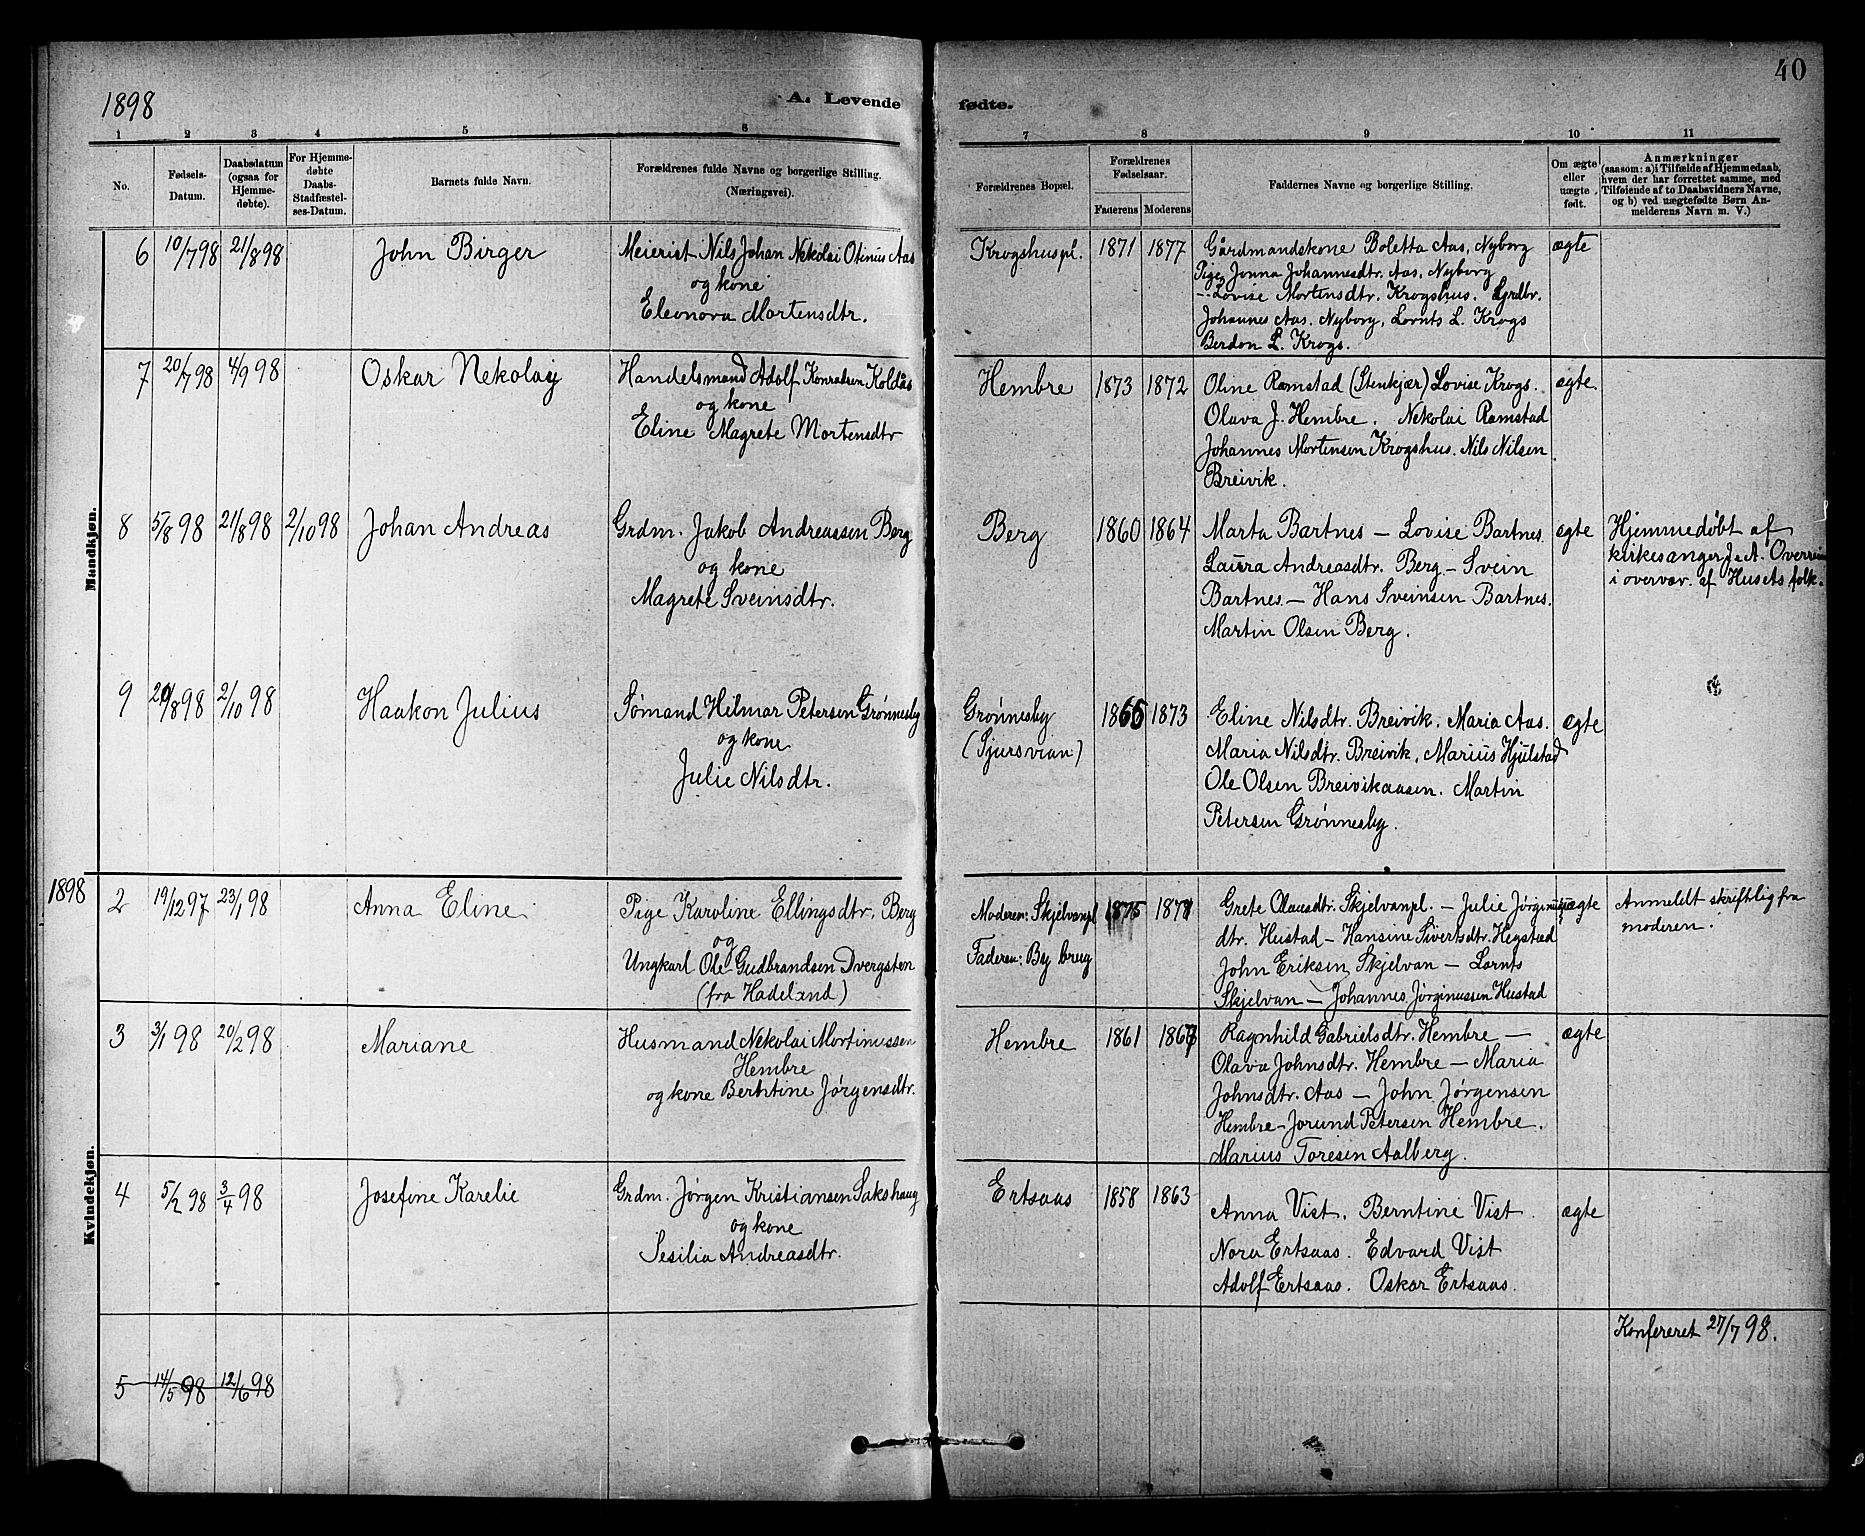 40
1898
A. Levende fødte.
1 2 3 4 5 6 7 8 9 10 11
No.
Fødsels-
Datum.
Daabsdatum
(ogsaa for
Hjemme-
døbte).
For Hjemme-
døbte
Daabs-
Stadfæstel-
ses-Datum.
Barnets fulde Navn.
Forældrenes fulde Navne og borgerlige Stilling.
(Næringsvei).
Forældrenes Bopæl.
Forældrenes
Fødselsaar.
Faderens Moderens
Faddernes Navne og borgerlige Stilling.
Om ægte
eller
uægte
født.
Anmærkninger
(saasom: a) i Tilfælde af Hjemmedaab,
hvem der har forrettet samme, med
Tilføiende af to Daabsvidners Navne,
og b) ved uægtefødte Børn An-
melderens Navn m. V.)
Mandkjøn.
6 10/7 98 21/8 98 John Birger
Meierist Nils Johan Nekolai Otinus Aas
og kone
Eleonora Mortensdtr.
Krogshuspl. 1871 1877
Gårdmandskone Boletta Aas, Nyborg
Pige Jonna Johannesdtr. Aas, Nyborg
-- Lovise Mortensdtr. Krogshus.
Johannes Aas, Nyborg, Lornts L. Krogs
Berdon L. Krogs.
ægte
7 20/7 98 4/9 98 Oskar Nekolay
Handelsmand Adolf Konradsen Koldås
og kone
Eline Magrete Mortensdtr
Hembre 1873 1872
Oline Ramstad (Stenkjær) Lovise Krogs.
Olava J. Hembre. Nekolai Ramstad
Johannes Mortensen Krogshus. Nils Nilsen
Breivik.
ægte
8 5/8 98 21/8 98 2/10 98 Johan Andreas
Grdm. Jakob Andreassen Berg
og kone
Magrete Sveinsdtr.
Berg 1860 1864
Marta Bartnes – Lovise Bartnes
Laura Andreasdtr. Berg – Svein
Bartnes – Hans Sveinsen Bartnes.
Martin Olsen Berg.
ægte
Hjemmedøbt af
kirkesanger J. A. Overrein
i overvær. af Husets folk.
9 20/8 98 2/10 98 Haakon Julius
Sømand Hilmar Petersen Grønnesby
og kone
Julie Nilsdtr.
Grønnesby
(Sjursvian)
1865 1873
Eline Nilsdtr. Breivik. Maria Aas.
Maria Nilsdtr. Breivik, Marius Hjulstad
Ole Olsen Breivikaasen. Martin
Petersen Grønnesby.
ægte
1898
Kvindekjøn.
2 19/12 97 23/1 98 Anna Eline
Pige Karoline Ellingsdtr. Berg
og
Ungkarl Ole Gudbrandsen Dvergsten
(fra Hadeland)
Moderen: Skjelvanpl
Faderen: By brug
1875 1871
Grete Olausdtr. Skjelvanpl. – Julie Jørginus
dtr. Hustad – Hansine Sivertsdtr. Hegstad
John Eriksen Skjelvan – Lornts
Skjelvan – Johannes Jørginussen Hustad
uægte
Anmeldt skriftlig fra
moderen.
3 3/1 98 20/2 98 Mariane
Husmand Nekolai Mortinussen
Hembre
og kone Berntine Jørgensdtr.
Hembre 1861 1867
Ragnhild Gabrielsdtr. Hembre –
Olava Johnsdtr. Hembre – Maria
Johnsdtr. Aas – John Jørgensen
Hembre – Jorund Petersen Hembre.
Marius Toresen Aalberg.
ægte
4 5/2 98 3/4 98 Josefine Karelie
Grdm. Jørgen Kristiansen Sakshaug
og kone
Sesilia Andreasdtr.
Ertsaas 1858 1863
Anna Vist. Berntine Vist.
Nora Ertsaas. Edvard Vist
Adolf Ertsaas. Oskar Ertsaas.
ægte
Konfereret 27/7 98.
5 14/5 98 12/6 98